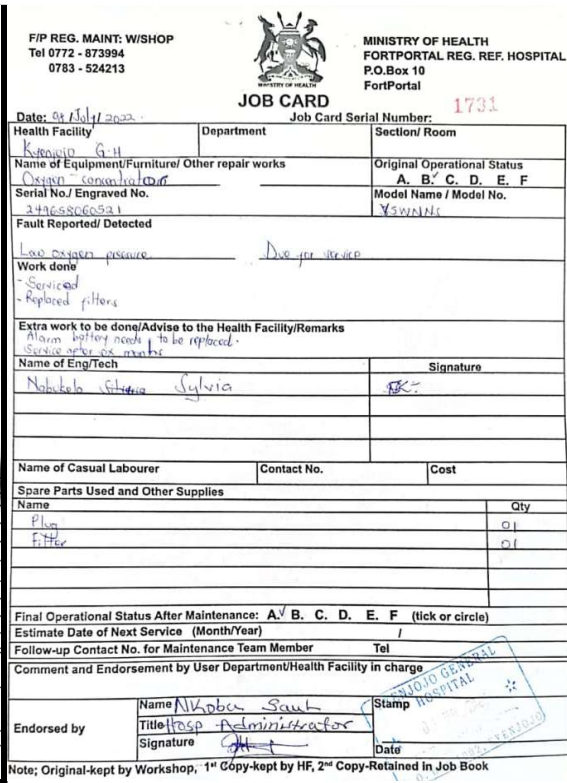 F/P REG. MAINT: W/SHOP
Tel 0772 - 873994
0783 - 524213
MINISTRY OF HEALTH
MINISTRY OF HEALTH
FORTPORTAL REG. REF. HOSPITAL
P.O.Box 10
FortPortal
JOB CARD
Date: July 2022.
Job Card Serial Number: 1731
Health Facility Department Section/ Room
Kyenjojo G.H
Name of Equipment/Furniture/ Other repair works Original Operational Status
Oxygen - concentrator A. B.✓ C. D. E. F
Serial No./ Engraved No. Model Name / Model No.
249658060521
Fault Reported/ Detected
Low oxygen pressure Due for service
Work done
- Serviced
- Replaced filters
Extra work to be done/Advise to the Health Facility/Remarks
Alarm battery needs to be replaced.
Service after six months
Name of Eng/Tech Signature
Sylvia
Name of Casual Labourer Contact No. Cost
Spare Parts Used and Other Supplies
Name Qty
Plug 01
Filter 01
Final Operational Status After Maintenance: A.✓ B. C. D. E. F (tick or circle)
Estimate Date of Next Service (Month/Year) /
Follow-up Contact No. for Maintenance Team Member Tel
Comment and Endorsement by User Department/Health Facility in charge
Endorsed by
Name Nkoba Saul
Title Hosp Administrator
Signature
Stamp
KYENJOJO GENERAL
HOSPITAL
Date
Note; Original-kept by Workshop, 1st Copy-kept by HF, 2nd Copy-Retained in Job Book